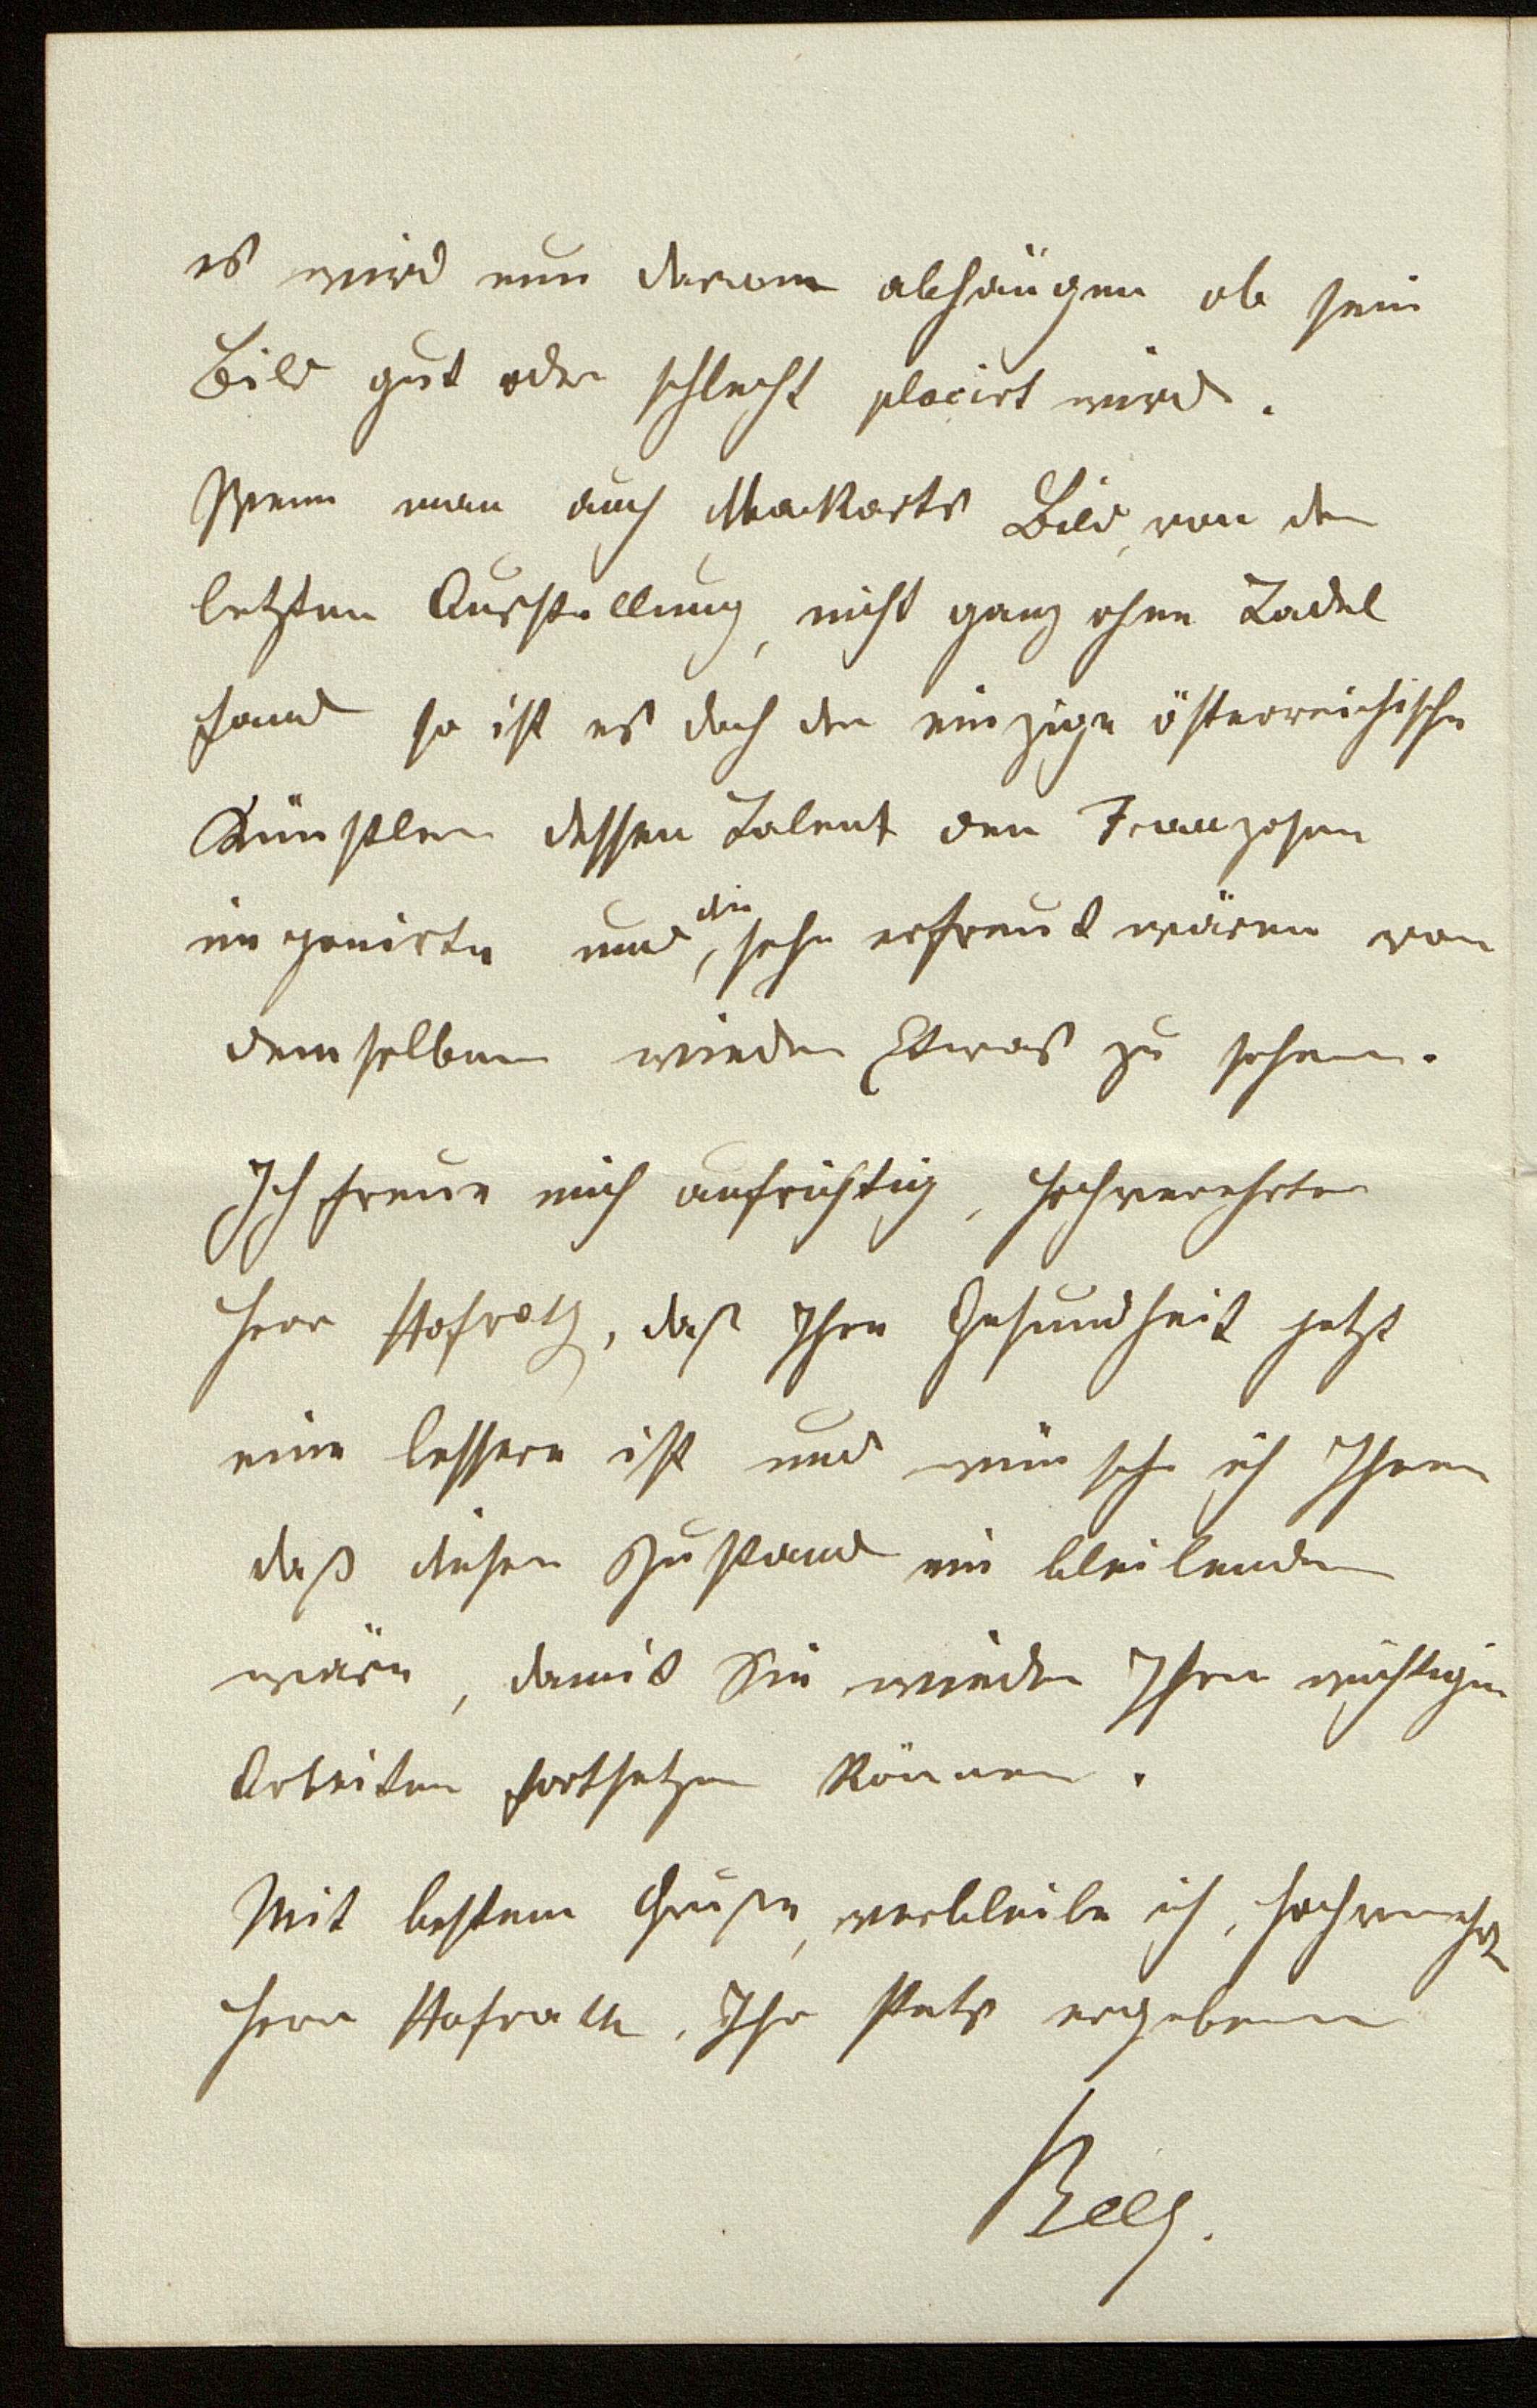 es wird nun davon abhängen ob sein
Bild gut oder schlecht placirt wird.
Wenn man auch Makarts Bild, von der
letzten Ausstellung, nicht ganz ohne Tadel
fand so ist es doch der einzige österreichische
Künstler dessen Talent den Franzosen
imponirte und die, sehr erfreut wären von
demselben wieder Etwas zu sehen.
Ich freue mich aufrichtig, hochverehrter
Herr Hofrath, daß Ihre Gesundheit jetzt
eine bessere ist und wünsche ich Ihnen
daß dieser Zustand ein bleibender
wäre, damit Sie wieder Ihre wichtigen
Arbeiten fortsetzen können.
Mit bestem Gruße, verbleibe ich, hochverehrter
Herr Hofrath, Ihr stets ergebener